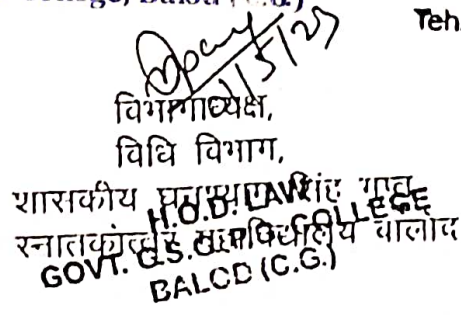 Teh
विभागाध्यक्ष,
विधि विभाग,
शासकीय घनश्याम सिंह गुप्त
स्नातकोत्तर महाविद्यालय बालोद
H.O.D. LAW
GOVT. G.S.G. P.G. COLLEGE
BALOD (C.G.)